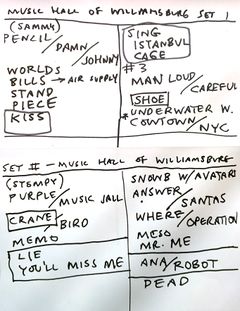 MUSIC HALL OF WILLIAMSBURG SET I
(SAMMY)
PENCIL/DAMN/JOHNNY
WORLDS
BILLS → AIR SUPPLY
STAND
PIECE
KISS
SING
ISTANBUL
CAGE
#3
MAN LOUD/CAREFUL
SHOE
*UNDERWATER W.
COWTOWN/NYC
SET II - MUSIC HALL OF WILLIAMSBURG
(STOMPY)
PURPLE/MUSIC JAIL
CRANE/BIRD
MEMO
LIE
YOU'LL MISS ME
SNOWB W/AVATAR
ANSWER/SANTAS
WHERE/OPERATION
MESO
MR. ME
ANA/ROBOT
DEAD